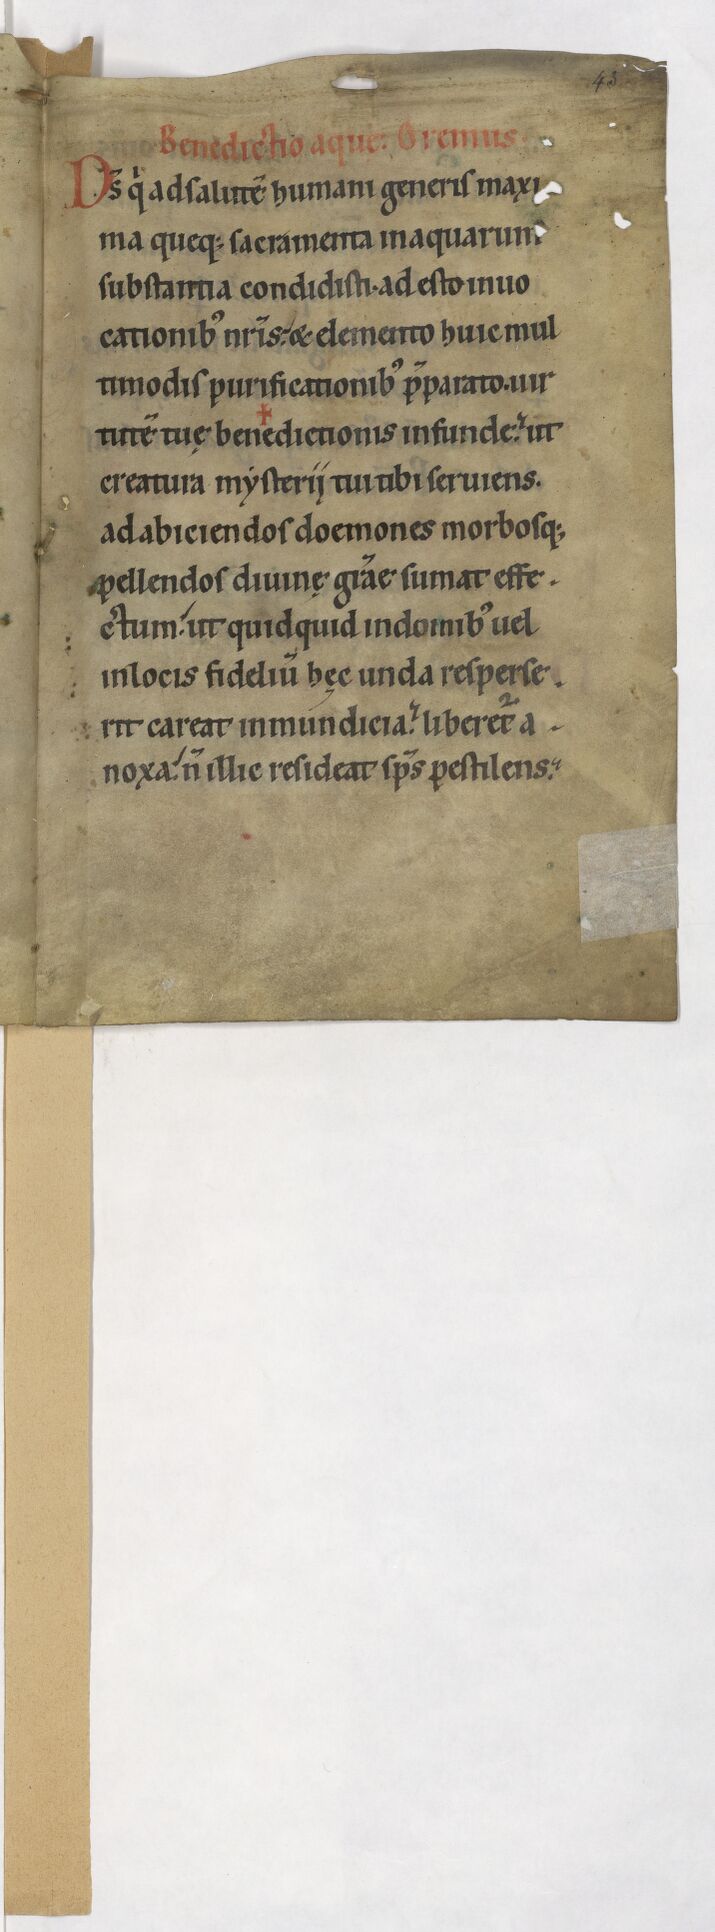 43
Benedictio aque. Oremus.
Ds̄ qͥ ad salutē humani generis maxi
ma queq; sacramenta in aquarum
substantia condidisti. ad esto inuo
cationibꝰ nr̄is. & elemento huic mul
timodis purificationibꝰ p̄parato. uir
tutē tuę bene✝dictionis infunde. ut
creatura mysterij tui tibi seruiens.
ad abiciendos doemones morbosq;
pellendos diuinę gr̄ae sumat effe
ctum. ut quidquid in domibꝰ uel
in locis fideliū hęc unda resperse
rit careat inmundicia. liberet᷑ a
noxa. n̄ illic resideat sp̄s pestilens.